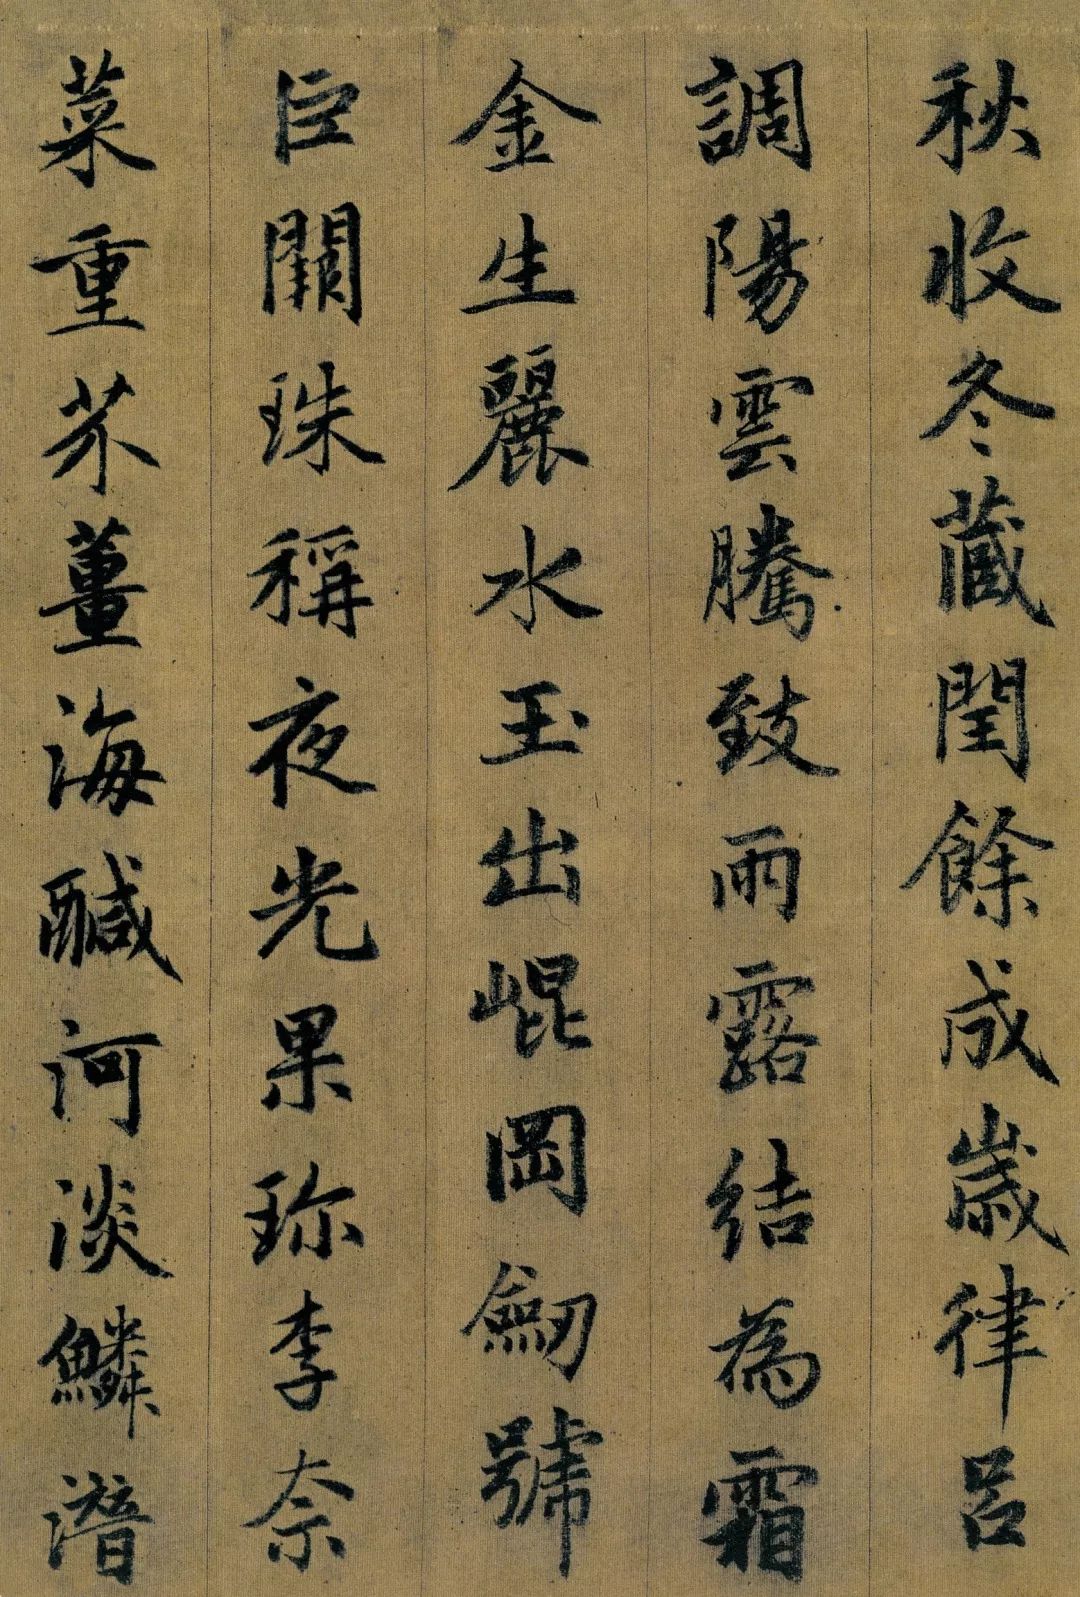 秋收冬藏閏餘成歲律吕
調陽雲騰致雨露結為霜
金生麗水玉出崐岡劒號
巨闕珠稱夜光果珎李柰
菜重芥薑海醎河淡鱗潛